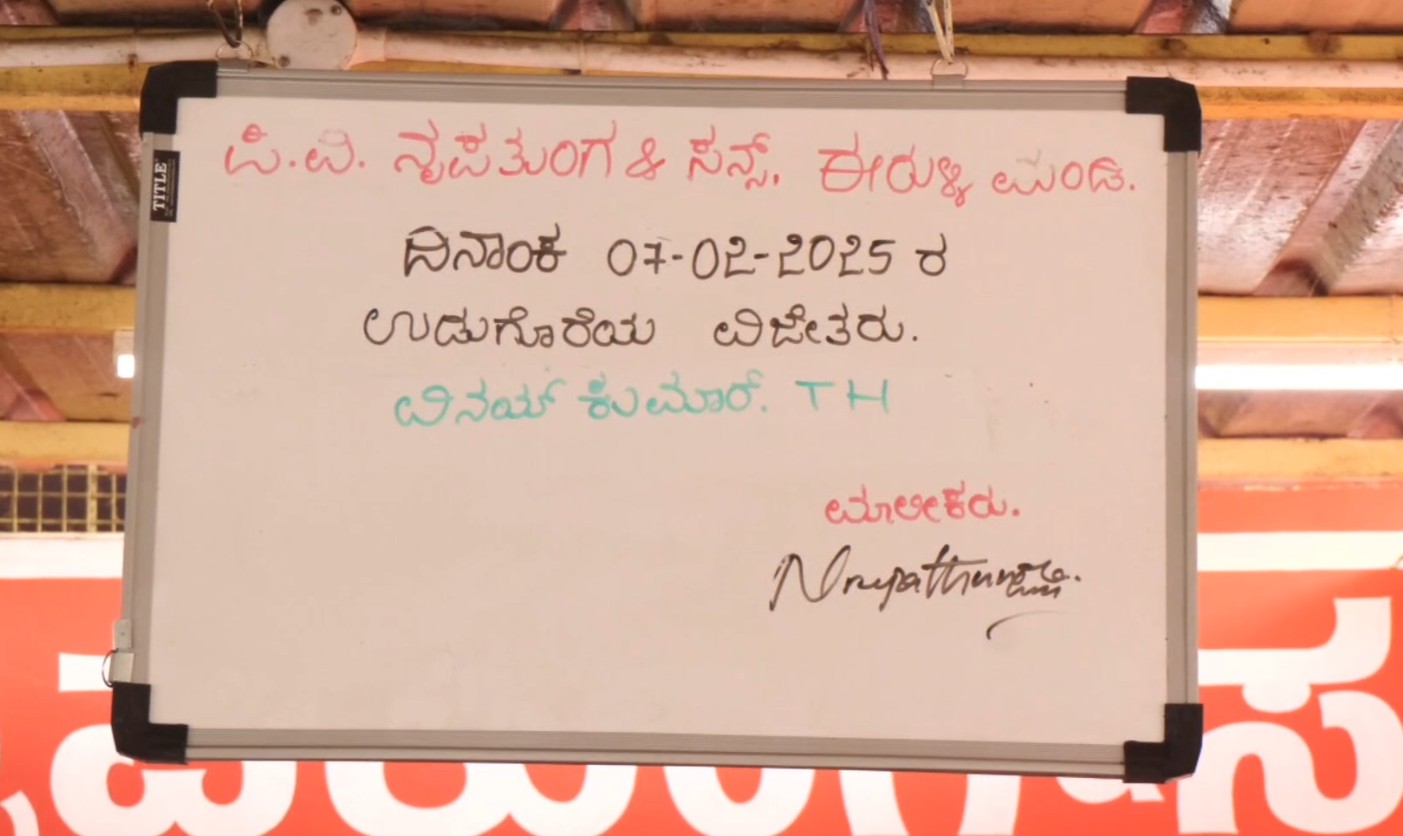 ಪಿ.ವಿ. ನೃಪತುಂಗ & ಸನ್ಸ್, ಈರುಳ್ಳಿ ಮಂಡಿ.
ದಿನಾಂಕ 07-02-2025 ರ
ಉಡುಗೊರೆಯ ವಿಜೇತರು.
ವಿನಯ್ ಕುಮಾರ್. TH
ಮಾಲೀಕರು.
Nrupathunga.
TITLE